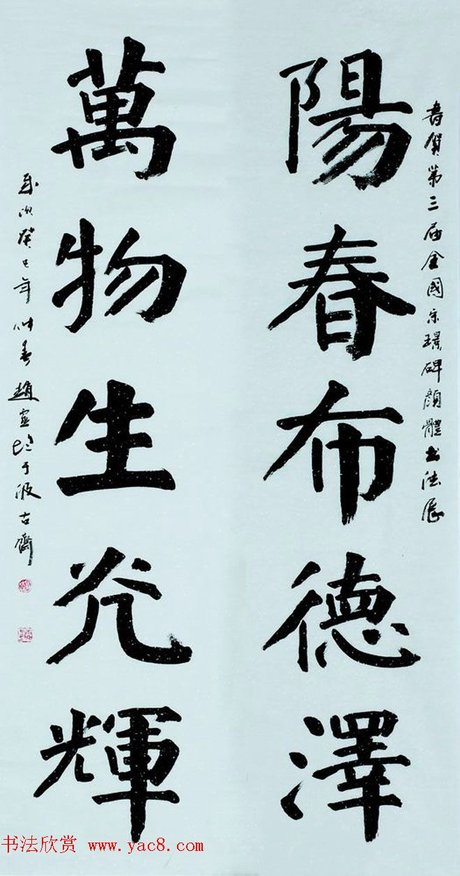 喜賀第三届全國宋璟碑顏體書法展
陽春布德澤
萬物生光輝
歲次癸巳年仲春趙汲古齋
书法欣赏 www.yac8.com